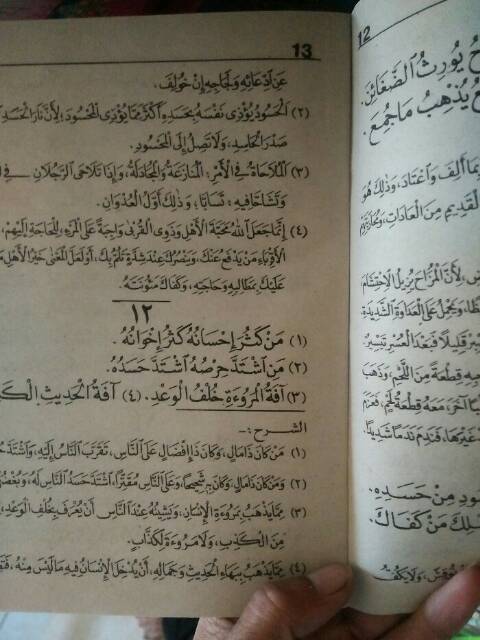 13
عَنِ ادِّعَائِهِ وَلَجَاجِهِ إِنْ خُولِفَ.
(٢) اَلْحَسُودُ يُؤْذِى نَفْسَهُ بِحَسَدِهِ أَكْثَرَ مِمَّا يُؤْذِى الْمَحْسُودَ؛ لِأَنَّ نَارَ الْحَسَدِ
صَدْرَ الْحَاسِدِ، وَلَا تَصِلُ إِلَى الْمَحْسُودِ.
(٣) اَلْمُلَاحَاةُ فِى الْأَمْرِ: الْمُنَازَعَةُ وَالْمُجَادَلَةُ، وَإِذَا تَلَاحَى الرَّجُلَانِ فِى
وَتَشَاتَمَا فِيهِ: تَسَابَّا، وَذٰلِكَ أَوَّلُ الْعُدْوَانِ.
(٤) إِنَّمَا جَعَلَ اللهُ مَحَبَّةَ الْأَهْلِ وَذَوِى الْقُرْبَى وَاجِبَةً عَلَى الْمَرْءِ، لِلْحَاجَةِ إِلَيْهِمْ،
الْأَقْرِبَاءِ مَنْ يَدْفَعُ عَنْكَ، وَيَنْصُرُكَ عِنْدَ شِدَّةٍ تُلِمُّ بِكَ، أَوْ لَعَلَّ الْمَعْنَى خَيْرُ الْأَهْلِ
عَلَيْكَ بِمَطَالِبِهِ وَحَاجِهِ، وَكَفَاكَ مَئُونَتَهُ.
١٢
(١) مَنْ كَثُرَ إِحْسَانُهُ كَثُرَ إِخْوَانُهُ.
(٢) مَنِ اشْتَدَّ حِرْصُهُ اشْتَدَّ حَسَدُهُ.
(٣) آفَةُ الْمُرُوءَةِ خُلْفُ الْوَعْدِ. (٤) آفَةُ الْحَدِيثِ
الشرح:-
(١) مَنْ كَانَ ذَا مَالٍ، وَكَانَ ذَا إِفْضَالٍ عَلَى النَّاسِ، تَقَرَّبَ النَّاسُ إِلَيْهِ،
(٢) وَمَنْ كَانَ ذَا مَالٍ، وَكَانَ بِهِ شَحِيحًا، وَعَلَى النَّاسِ مُقَتِّرًا، اشْتَدَّ حَسَدُ النَّاسِ لَهُ،
(٣) مِمَّا يَذْهَبُ بِمُرُوءَةِ الْإِنْسَانِ، وَيَشِينُهُ عِنْدَ النَّاسِ أَنْ يُعْرَفَ بِخُلْفِ الْوَعْدِ،
مِنَ الْكَذِبِ، وَلَا مُرُوءَةَ لِكَذَّابٍ.
(٤) مِمَّا يَذْهَبُ بِبَهَاءِ الْحَدِيثِ وَجَمَالِهِ، أَنْ يُدْخِلَ الْإِنْسَانُ فِيهِ مَا لَيْسَ مِنْهُ،
12
يُورِثُ الضَّغَائِنَ.
يُذْهِبُ مَا جُمِعَ.
أُلِفَ وَاعْتَادَ، وَذٰلِكَ هُوَ
الْقَدِيمِ مِنَ الْعَادَاتِ،
لِأَنَّ الْمُزَاحَ يُزِيلُ الْاِحْتِشَامَ
وَيَحْمِلُ عَلَى الْعَدَاوَةِ الشَّدِيدَةِ
قَلِيلًا فَبَعْدَ الْعُسْرِ
قِطْعَةٌ مِنَ اللَّحْمِ، وَذَهَبَ
آخَرَ، مَعَهُ قِطْعَةُ لَحْمٍ،
فَنَدِمَ نَدَمًا شَدِيدًا
مِنْ حَسَدِهِ.
مَنْ كَفَاكَ.